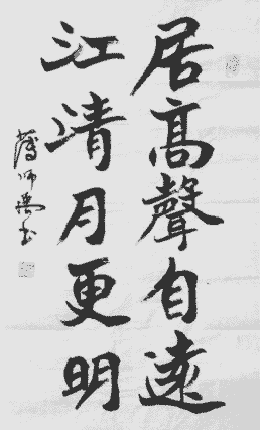 居高聲自遠
江清月更明